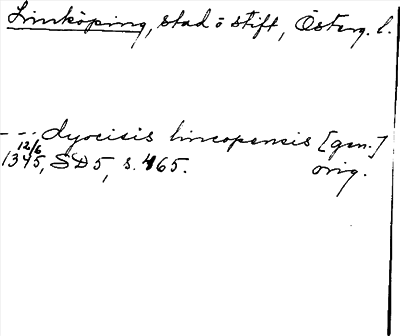 Linköping, stad o stift, Österg. l.
--- dyocisis lincopensis [gen.]
12/6
1345, SD 5, s. 465. orig.